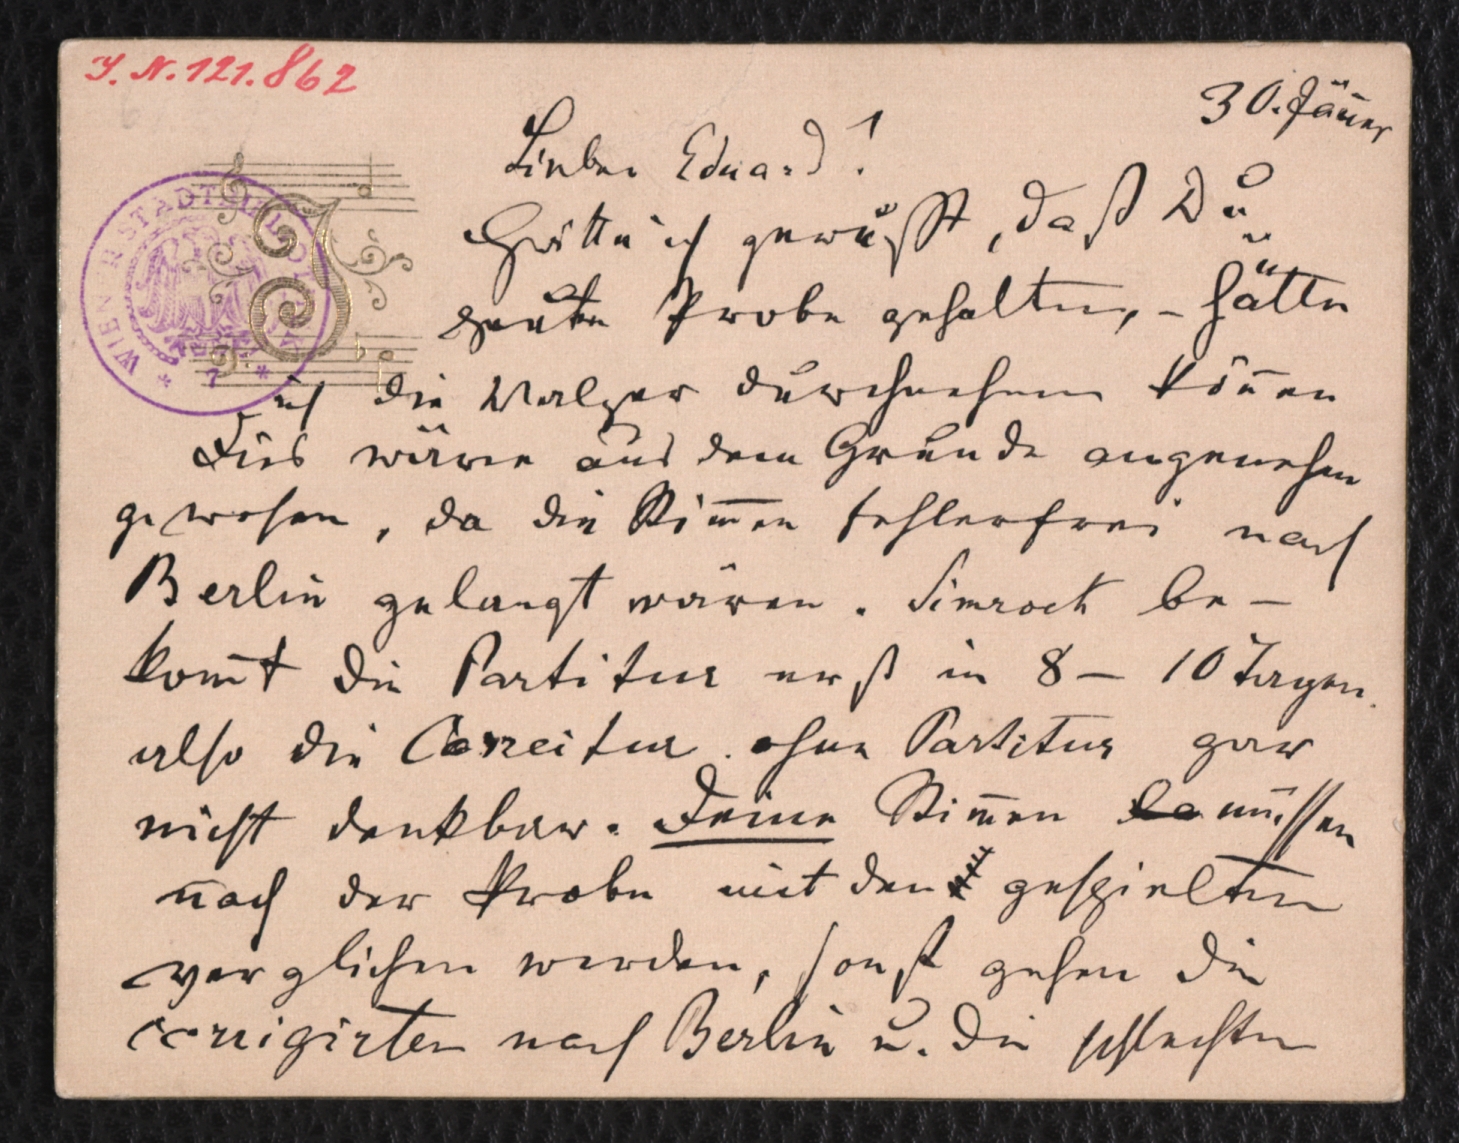 I. N. 121.862
30. Jäner
Lieber Eduard!
Hätte ich gewußt, daß Du
heute Probe gehalten, – hätte
ich die Walzer durchnehmen können
Dies wäre aus dem Grunde angenehm
gewesen, da die Stim̅en fehlerfrei nach
Berlin gelangt wären. Simrock be–
kom̅t die Partitur erst in 8 – 10 Tagen.
also die Correctur ohne Partitur gar
nicht denkbar. Deine Stim̅en müssen
nach der Probe mit den gespielten
verglichen werden, sonst gehen die
corrigirten nach Berlin u. die schlechten
WIENER STADTBIBLIOTHEK
* 7 *